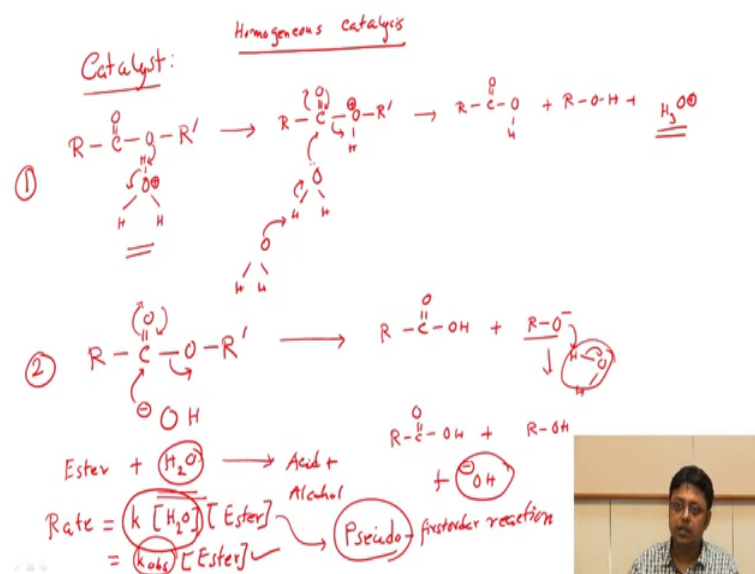 Homogeneous catalysis
Catalyst:
①
R - C - O - R'
O
H
O⊕
H H
→
R - C - O - R'
O ⊕
H
O
H H
O
H H
→
R - C - O
O
H
+ R-O-H + H₃O⊕
②
R - C - O - R'
O
⊖OH
→
R - C - OH + R-O⁻
O
H-O
H
↓
R - C - OH + R-OH
O
+ ⊖OH
Ester + H₂O → Acid +
Alcohol
Rate = k [H₂O] [Ester]
= kobs [Ester] ✓
Pseudo-first order reaction